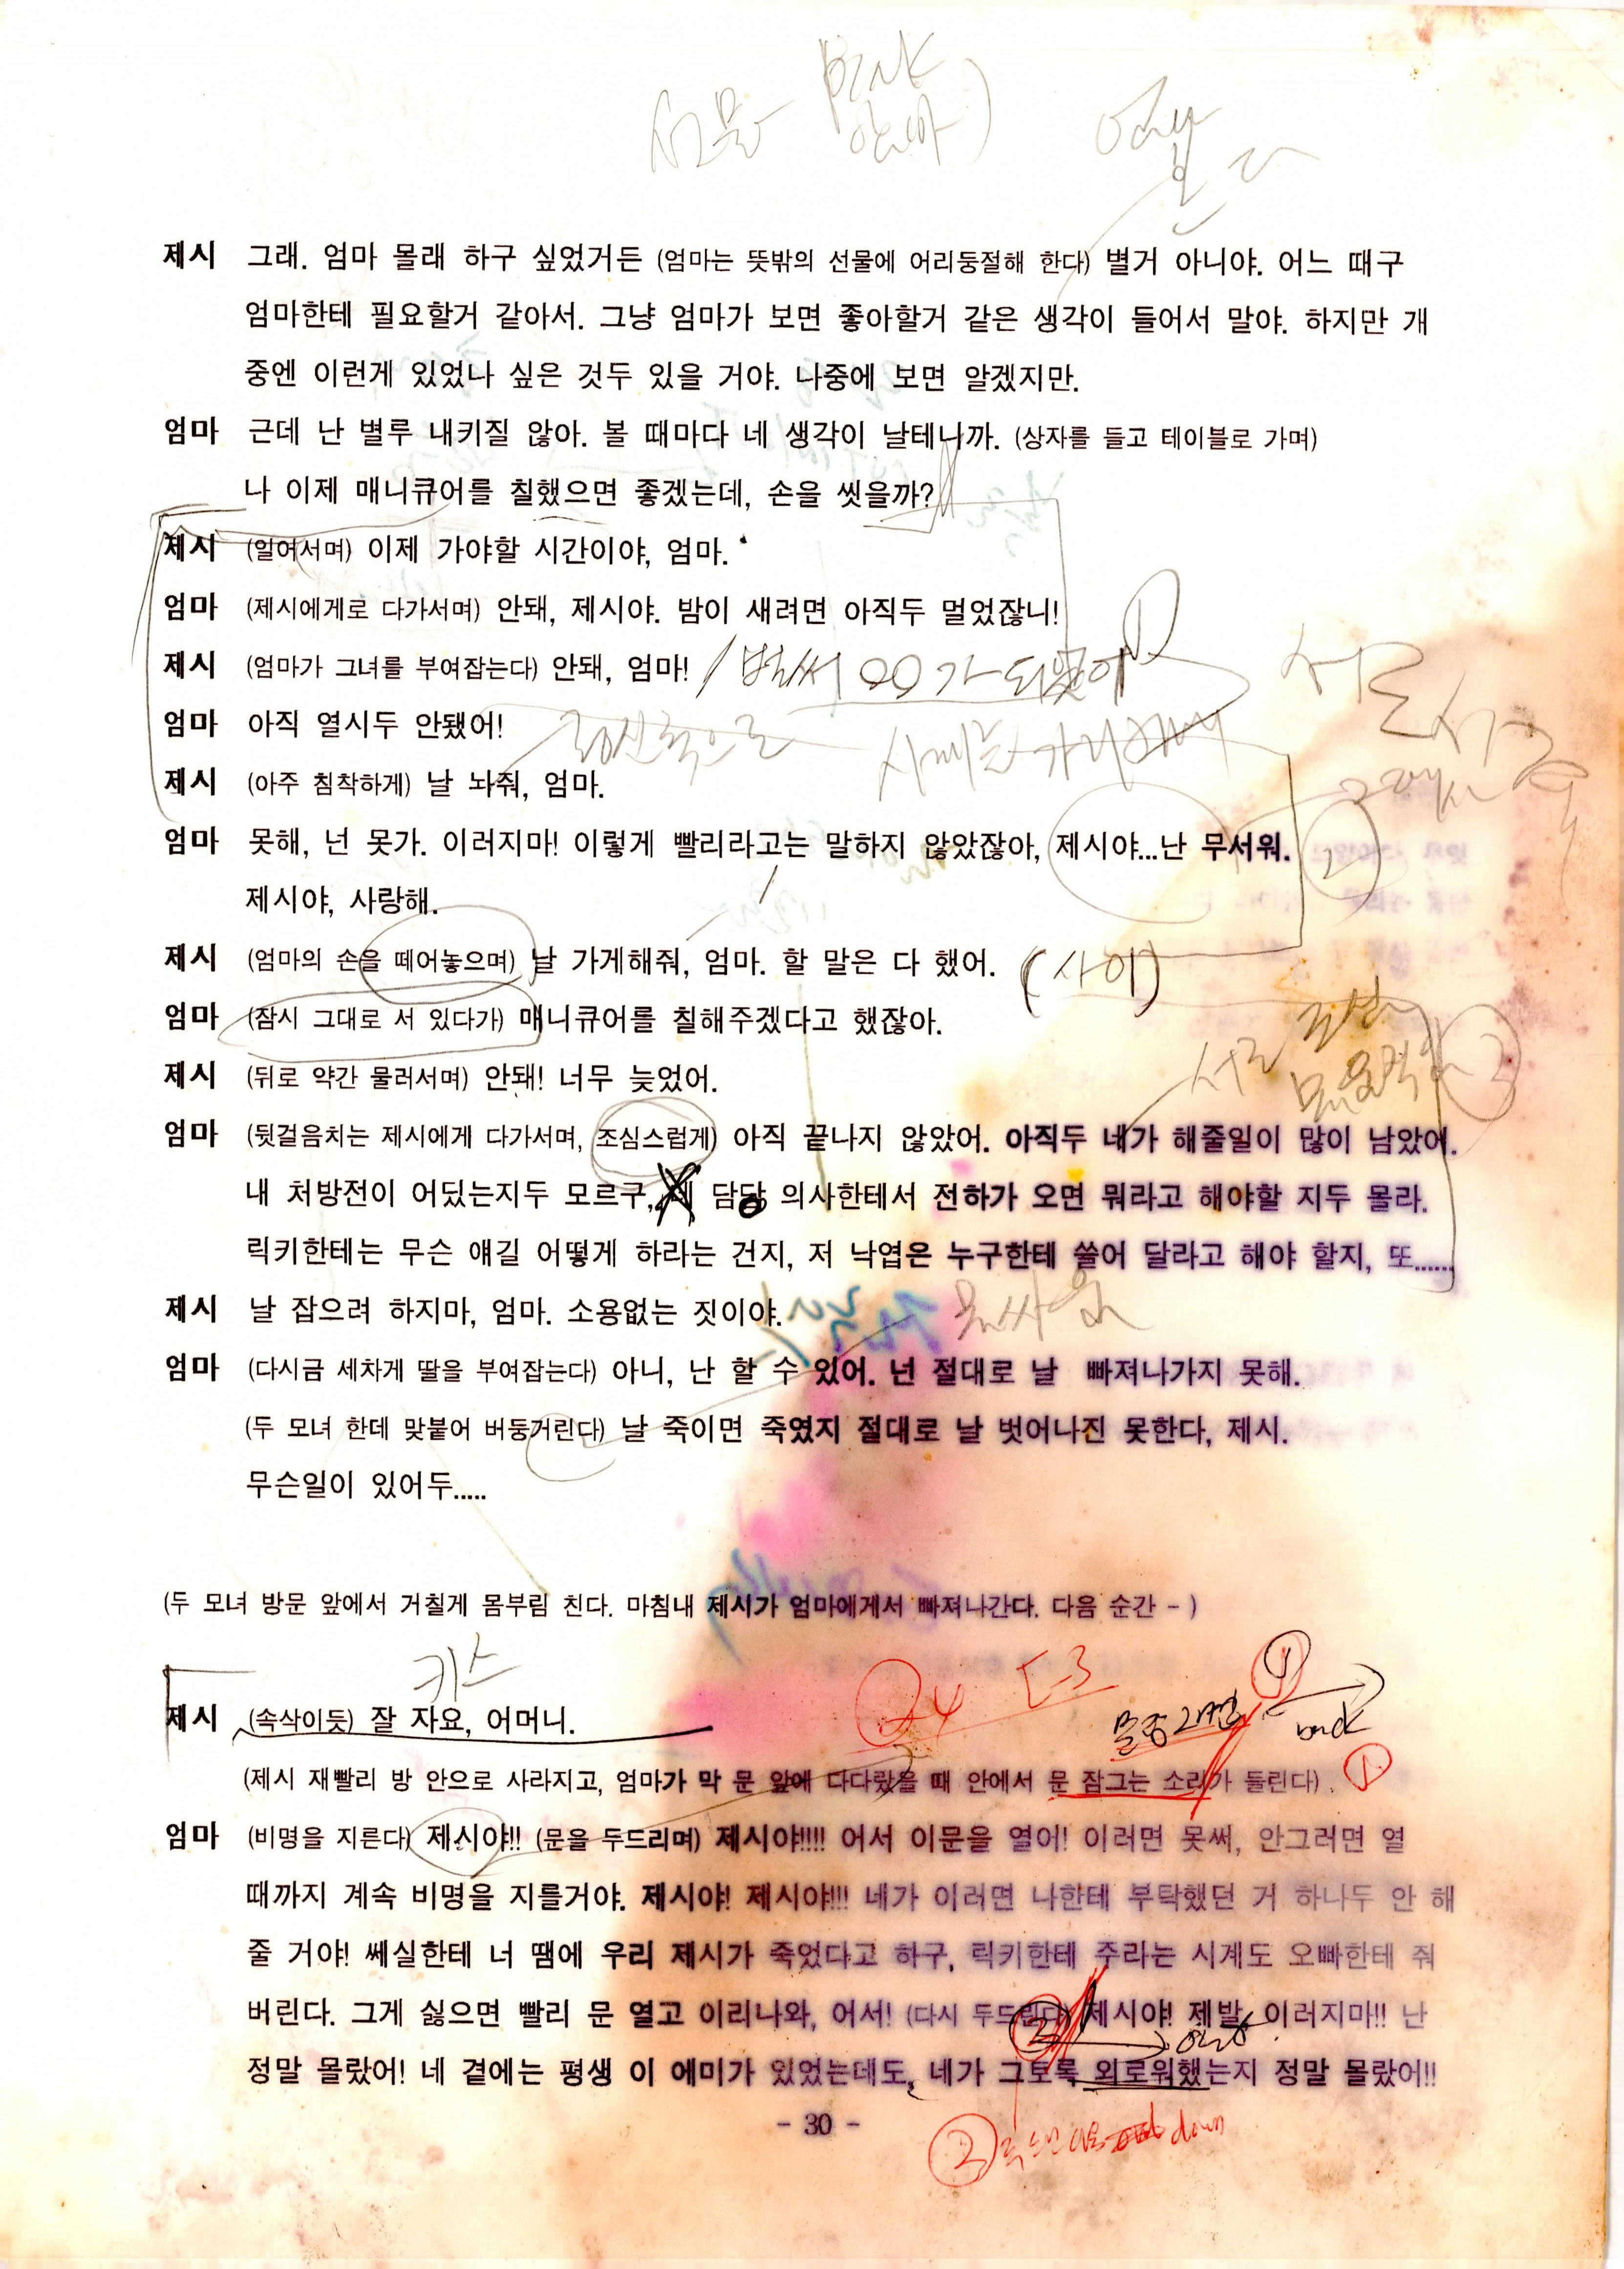 제시 그래. 엄마 몰래 하구 싶었거든 (엄마는 뜻밖의 선물에 어리둥절해 한다) 별거 아니야. 어느 때구
엄마한테 필요할거 같아서. 그냥 엄마가 보면 좋아할거 같은 생각이 들어서 말야. 하지만 개
중엔 이런게 있었나 싶은 것두 있을 거야. 나중에 보면 알겠지만.
엄마 근데 난 별루 내키질 않아. 볼 때마다 네 생각이 날테니까. (상자를 들고 테이블로 가며)
나 이제 매니큐어를 칠했으면 좋겠는데, 손을 씻을까?
제시 (일어서며) 이제 가야할 시간이야, 엄마.
엄마 (제시에게로 다가서며) 안돼, 제시야. 밤이 새려면 아직두 멀었잖니!
제시 (엄마가 그녀를 부여잡는다) 안돼, 엄마! / 벌써 00가 되었어
엄마 아직 열시두 안됐어!
제시 (아주 침착하게) 날 놔줘, 엄마.
엄마 못해, 넌 못가. 이러지마! 이렇게 빨리라고는 말하지 않았잖아, 제시야...난 무서워. 2
제시야, 사랑해.
제시 (엄마의 손을 떼어놓으며) 날 가게해줘, 엄마. 할 말은 다 했어. (사이)
엄마 (잠시 그대로 서 있다가) 매니큐어를 칠해주겠다고 했잖아.
제시 (뒤로 약간 물러서며) 안돼! 너무 늦었어. 3
엄마 (뒷걸음치는 제시에게 다가서며, 조심스럽게) 아직 끝나지 않았어. 아직두 네가 해줄일이 많이 남았어.
내 처방전이 어딨는지두 모르구, 담당 의사한테서 전하가 오면 뭐라고 해야할 지두 몰라.
릭키한테는 무슨 얘길 어떻게 하라는 건지, 저 낙엽은 누구한테 쓸어 달라고 해야 할지, 또......
제시 날 잡으려 하지마, 엄마. 소용없는 짓이야. 몸싸움
엄마 (다시금 세차게 딸을 부여잡는다) 아니, 난 할 수 있어. 넌 절대로 날 빠져나가지 못해.
(두 모녀 한데 맞붙어 버둥거린다) 날 죽이면 죽였지 절대로 날 벗어나진 못한다, 제시.
무슨일이 있어두.....
(두 모녀 방문 앞에서 거칠게 몸부림 친다. 마침내 제시가 엄마에게서 빠져나간다. 다음 순간 - )
키스
제시 (속삭이듯) 잘 자요, 어머니.
(제시 재빨리 방 안으로 사라지고, 엄마가 막 문 앞에 다다랐을 때 안에서 문 잠그는 소리가 들린다) 1
엄마 (비명을 지른다) 제시야!! (문을 두드리며) 제시야!!!! 어서 이문을 열어! 이러면 못써, 안그러면 열
때까지 계속 비명을 지를거야. 제시야! 제시야!!! 네가 이러면 나한테 부탁했던 거 하나두 안 해
줄 거야! 쎄실한테 너 땜에 우리 제시가 죽었다고 하구, 릭키한테 주라는 시계도 오빠한테 줘
버린다. 그게 싫으면 빨리 문 열고 이리나와, 어서! (다시 두드린다) 제시야! 제발 이러지마!! 난
정말 몰랐어! 네 곁에는 평생 이 에미가 있었는데도, 네가 그토록 외로워했는지 정말 몰랐어!!
- 30 -
2 down